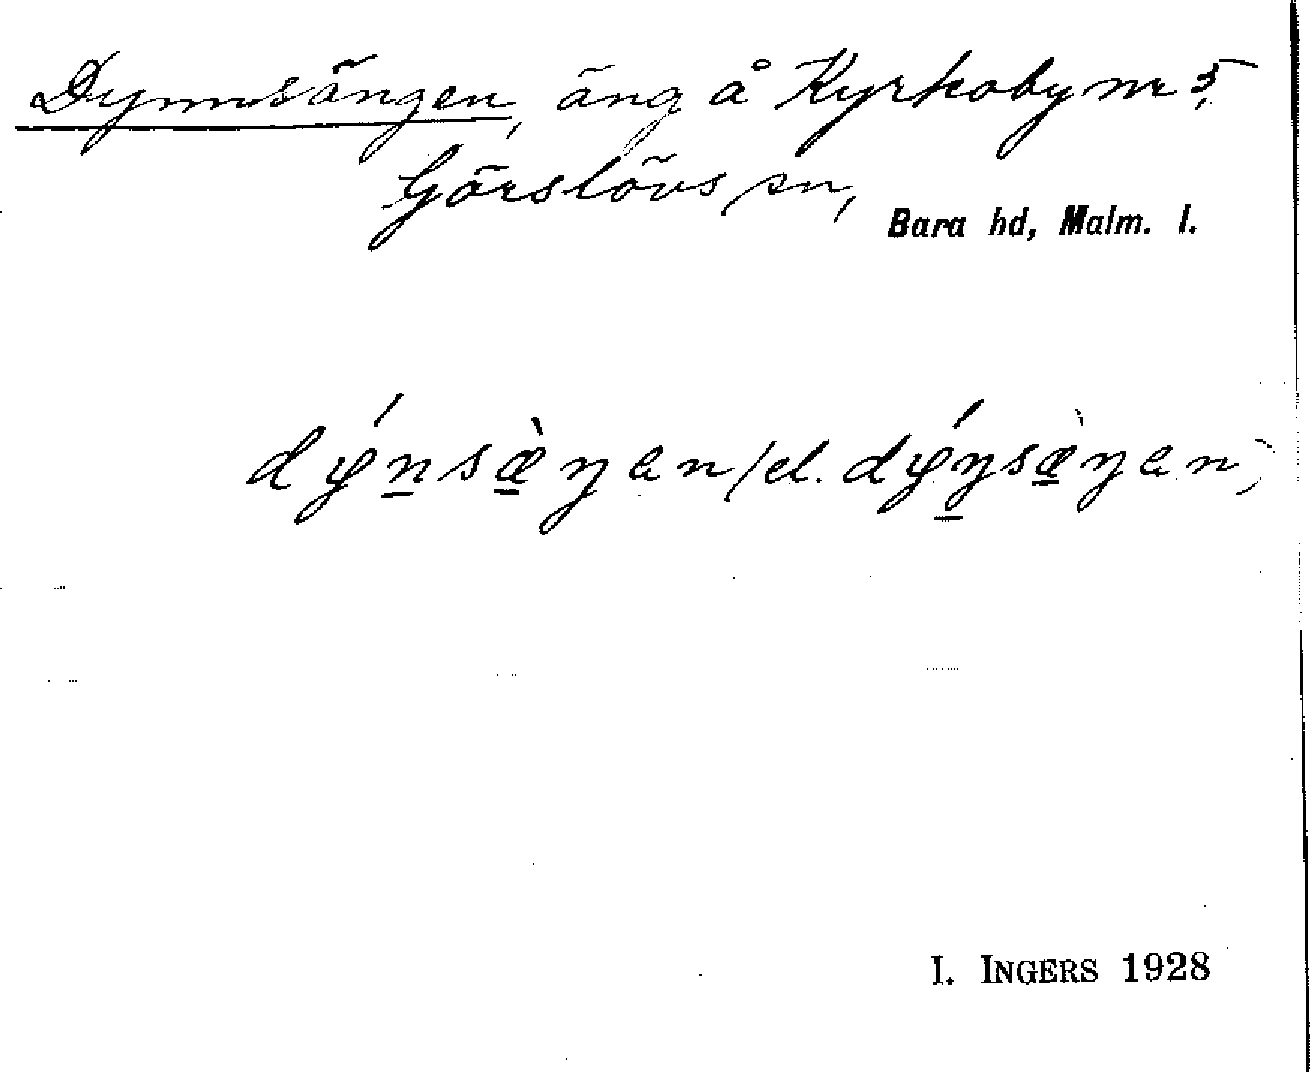 Dynnsängen, äng å Kyrkoby nr 5,
Görslövs sn,
Bara hd, Malm. l.
dýnsæ̀ŋen / el. dýŋsæ̀ŋen,
I. INGERS 1928